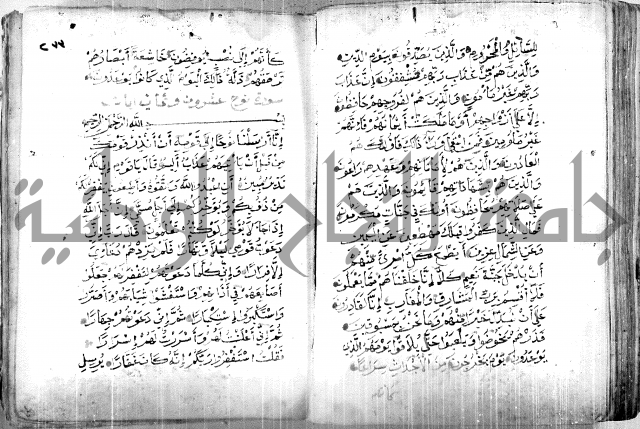 للسائل والمحروم والذين يصدقون بيوم الدين
والذين هم من عذاب ربهم مشفقون إن عذاب
ربهم غير مأمون والذين هم لفروجهم حافظون
إلا على أزواجهم أو ما ملكت أيمانهم فإنهم
غير ملومين فمن ابتغى وراء ذلك فأولئك هم
العادون والذين هم لأماناتهم وعهدهم راعون
والذين هم بشهاداتهم قائمون والذين هم
على صلاتهم يحافظون أولئك في جنات مكرمون
فمال الذين كفروا قبلك مهطعين عن اليمين
وعن الشمال عزين أيطمع كل امرئ منهم
أن يدخل جنة نعيم كلا إنا خلقناهم مما يعلمون
فلا أقسم برب المشارق والمغارب إنا لقادرون
على أن نبدل خيرا منهم وما نحن بمسبوقين
فذرهم يخوضوا ويلعبوا حتى يلاقوا يومهم الذي
يوعدون يوم يخرجون من الأجداث سراعا
كأنهم
٢٧٧
كأنهم إلى نصب يوفضون خاشعة أبصارهم
ترهقهم ذلة ذلك اليوم الذي كانوا يوعدون
سورة نوح عشرون وثمان آيات
بسم الله الرحمن الرحيم
إنا أرسلنا نوحا إلى قومه أن أنذر قومك
من قبل أن يأتيهم عذاب أليم قال يا قوم إني لكم
نذير مبين أن اعبدوا الله واتقوه وأطيعون يغفر لكم
من ذنوبكم ويؤخركم إلى أجل مسمى إن أجل الله
إذا جاء لا يؤخر لو كنتم تعلمون قال رب إني
دعوت قومي ليلا ونهارا فلم يزدهم دعائي
إلا فرارا وإني كلما دعوتهم لتغفر لهم جعلوا
أصابعهم في آذانهم واستغشوا ثيابهم وأصروا
واستكبروا استكبارا ثم إني دعوتهم جهارا
ثم إني أعلنت لهم وأسررت لهم إسرارا
فقلت استغفروا ربكم إنه كان غفارا يرسل
جامعة النجاح الوطنية